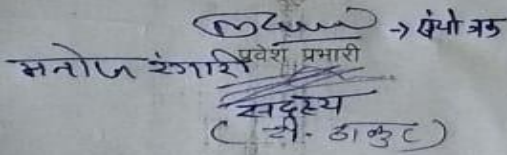 → संयोजक
मनोज रंगारी प्रवेश प्रभारी
सदस्य
(टी. ठाकुर)